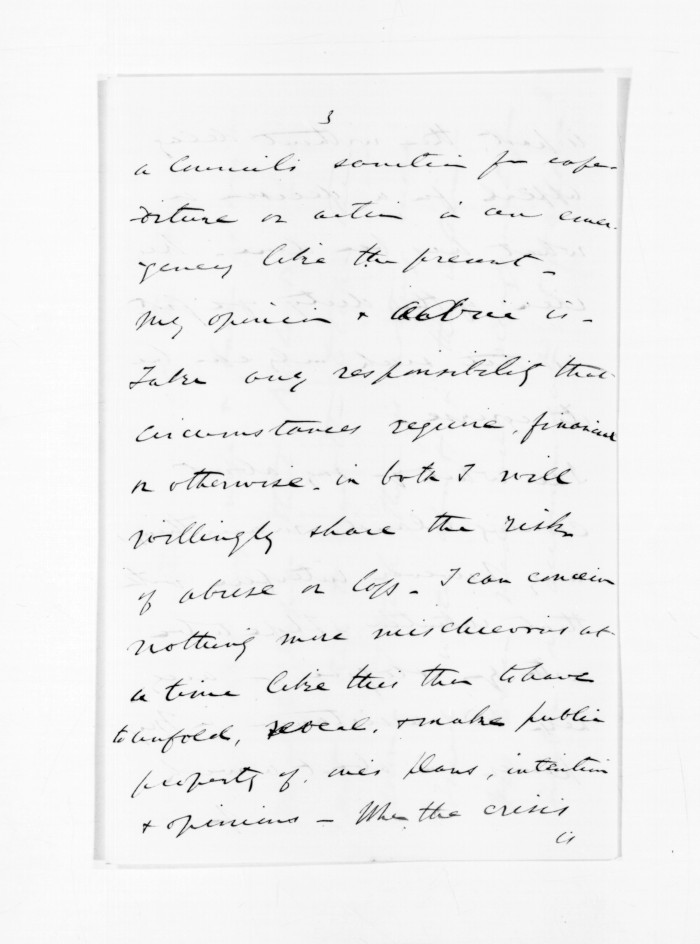 3
a Council's sanction for expe-
diture or action in an emer-
gency like the present -
My opinion & advice is -
Take any responsibility that
circumstances require, financial
or otherwise - in both I will
willingly share the risk
of abuse or loss - I can conceive
nothing more mischievous at
a time like this than to have
to unfold, reveal, & make public
property of one's plans, intention
& opinions - When the crisis
is